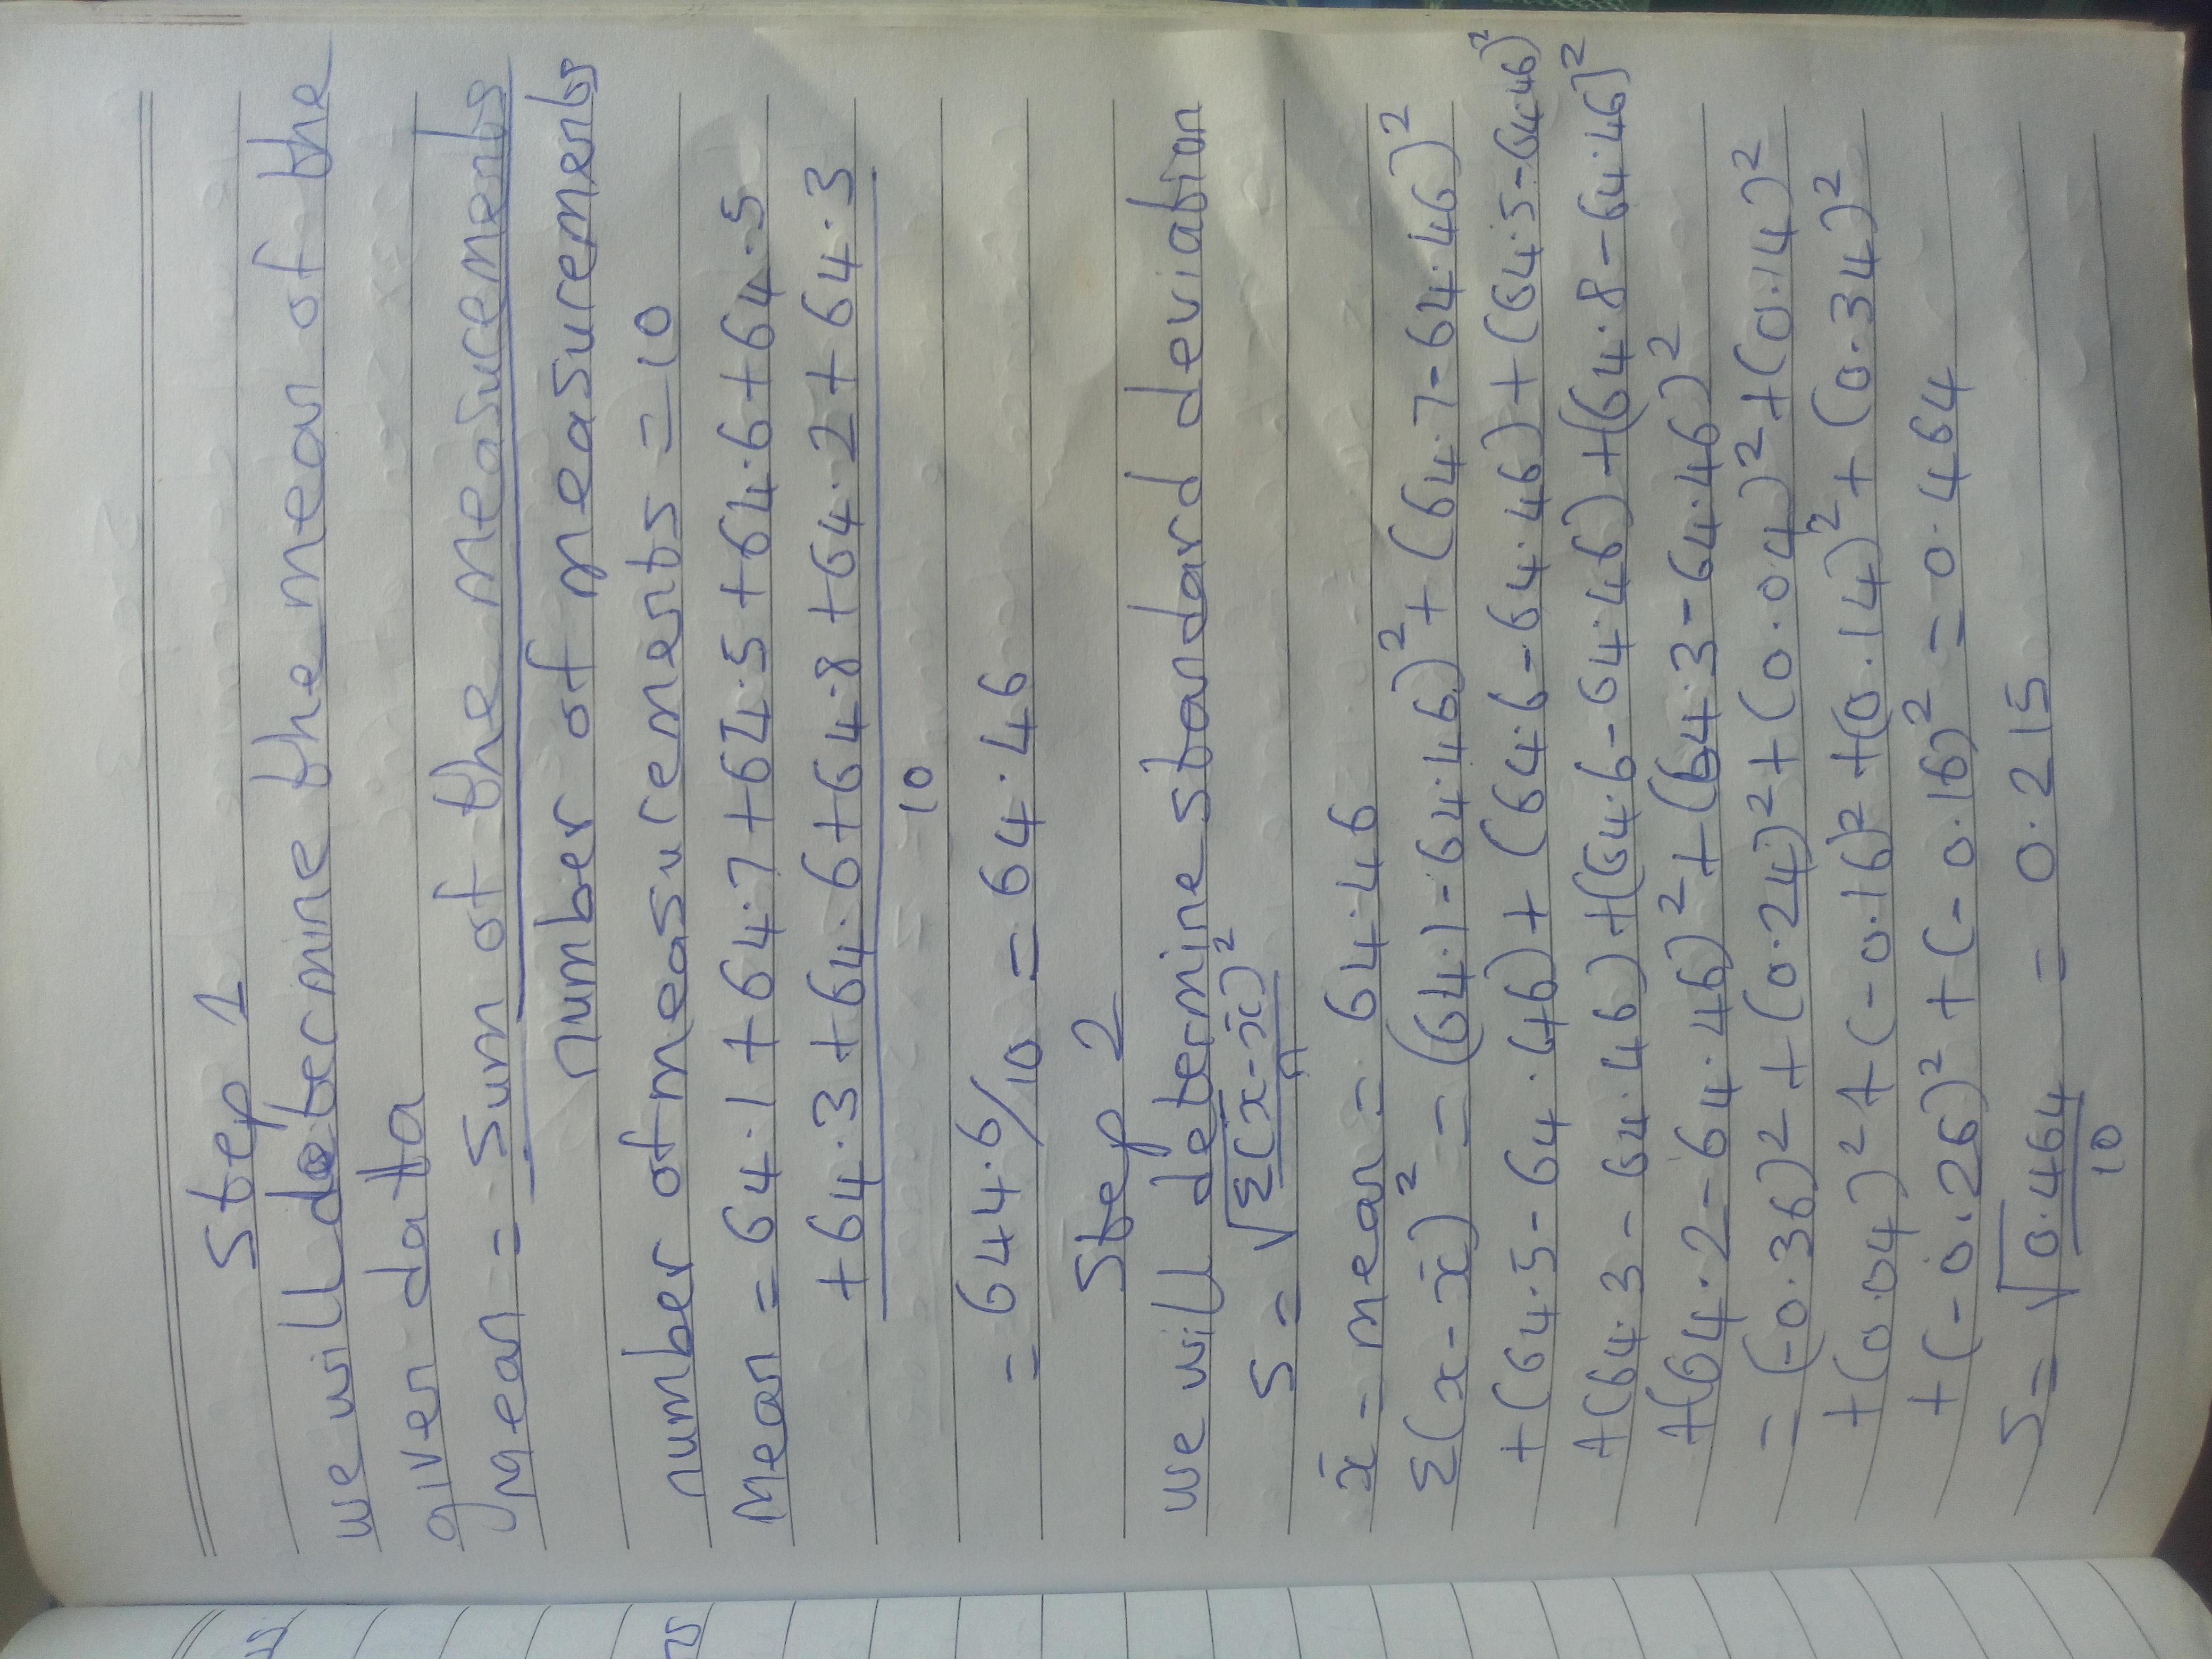 Step 1
we will determine the mean of the
given data
Mean = Sum of the measurements
number of measurements
number of measurements = 10
Mean = 64.1 + 64.7 + 64.5 + 64.6 + 64.5
+ 64.3 + 64.6 + 64.8 + 64.2 + 64.3
10
= 644.6/10 = 64.46
Step 2
we will determine standard deviation
S = √Σ(x-x̄)²
n
x̄ = mean = 64.46
Σ(x-x̄)² = (64.1-64.46)² + (64.7-64.46)²
+(64.5-64.46)+ (64.6-64.46)+(64.5-64.46)²
+(64.3-64.46)+(64.6-64.46)+(64.8-64.46)²
+(64.2-64.46)²+(64.3-64.46)²
= (-0.36)²+(0.24)²+(0.04)²+(0.14)²
+(0.04)²+(-0.16)²+(0.14)²+(0.34)²
+(-0.26)²+(-0.16)² = 0.464
S = √0.464 = 0.215
10